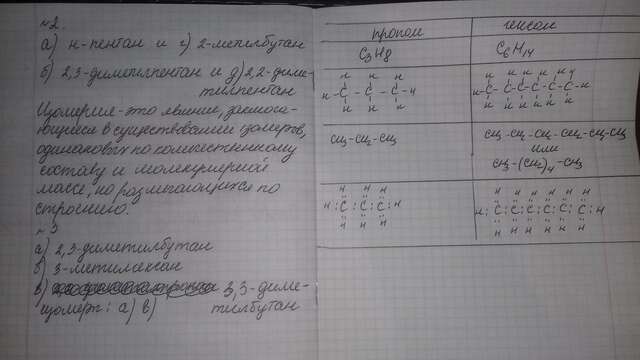 №2.
а) н-пентан и г) 2-метилбутан
б) 2,3-диметилпентан и д) 2,2-диме-
тилпентан
Изомерия - это явление, заключа-
ющееся в существовании изомеров,
одинаковых по количественному
составу и молекулярной
массе, но различающихся по
строению.
№3
а) 2,3-диметилбутан
б) 3-метилгексан
в) 3,3-диме-
тилбутан
изомеры: а) в)
пропан гексан
C3H8 C6H14
H H H H H H H H H
H-C-C-C-H H-C-C-C-C-C-C-H
H H H H H H H H H
CH3-CH2-CH3 CH3-CH2-CH2-CH2-CH2-CH3
или
CH3-(CH2)4-CH3
H H H H H H H H H
H:C:C:C:H H:C:C:C:C:C:C:H
H H H H H H H H H